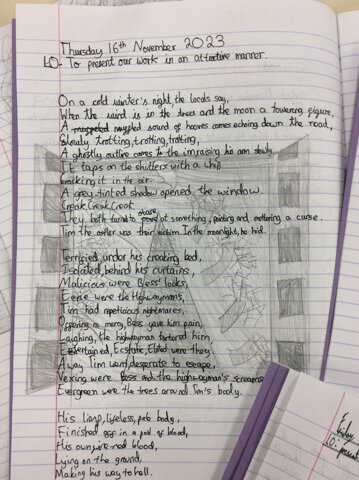 Thursday 16th November 2023
LO- To present our work in an attractive manner.
On a cold winter's night, the locals say,
When the wind is in the trees and the moon a towering figure,
A muffled sound of hooves comes echoing down the road,
Slowly trotting, trotting, trotting,
A ghostly outline comes to the inn, raising his arm slowly,
It taps on the shutters with a whip
cracking it in the air.
A grey-tinted shadow opened the window.
Creak Creak Creak
They both turn to stare point at something, pointing and muttering a curse.
Tim the ostler was their victim. In the moonlight, he hid.
Terrified under his creaking bed,
Isolated, behind his curtains,
Malicious were Bess' looks,
Eerie were the Highwaymans,
Tim had repetitious nightmares,
Offering no mercy, Bess gave him pain,
Laughing, the highwayman tortured him,
Entertained, Ecstatic, Elated were they,
Away Tim went desperate to escape,
Vexing were Bess and the highwayman's screams
Evergreen were the trees around Tim's body.
His limp, lifeless, pale body,
Finished off in a pool of blood,
His own fire-red blood,
Lying on the ground,
Making his way to hell.
Friday
LO- present